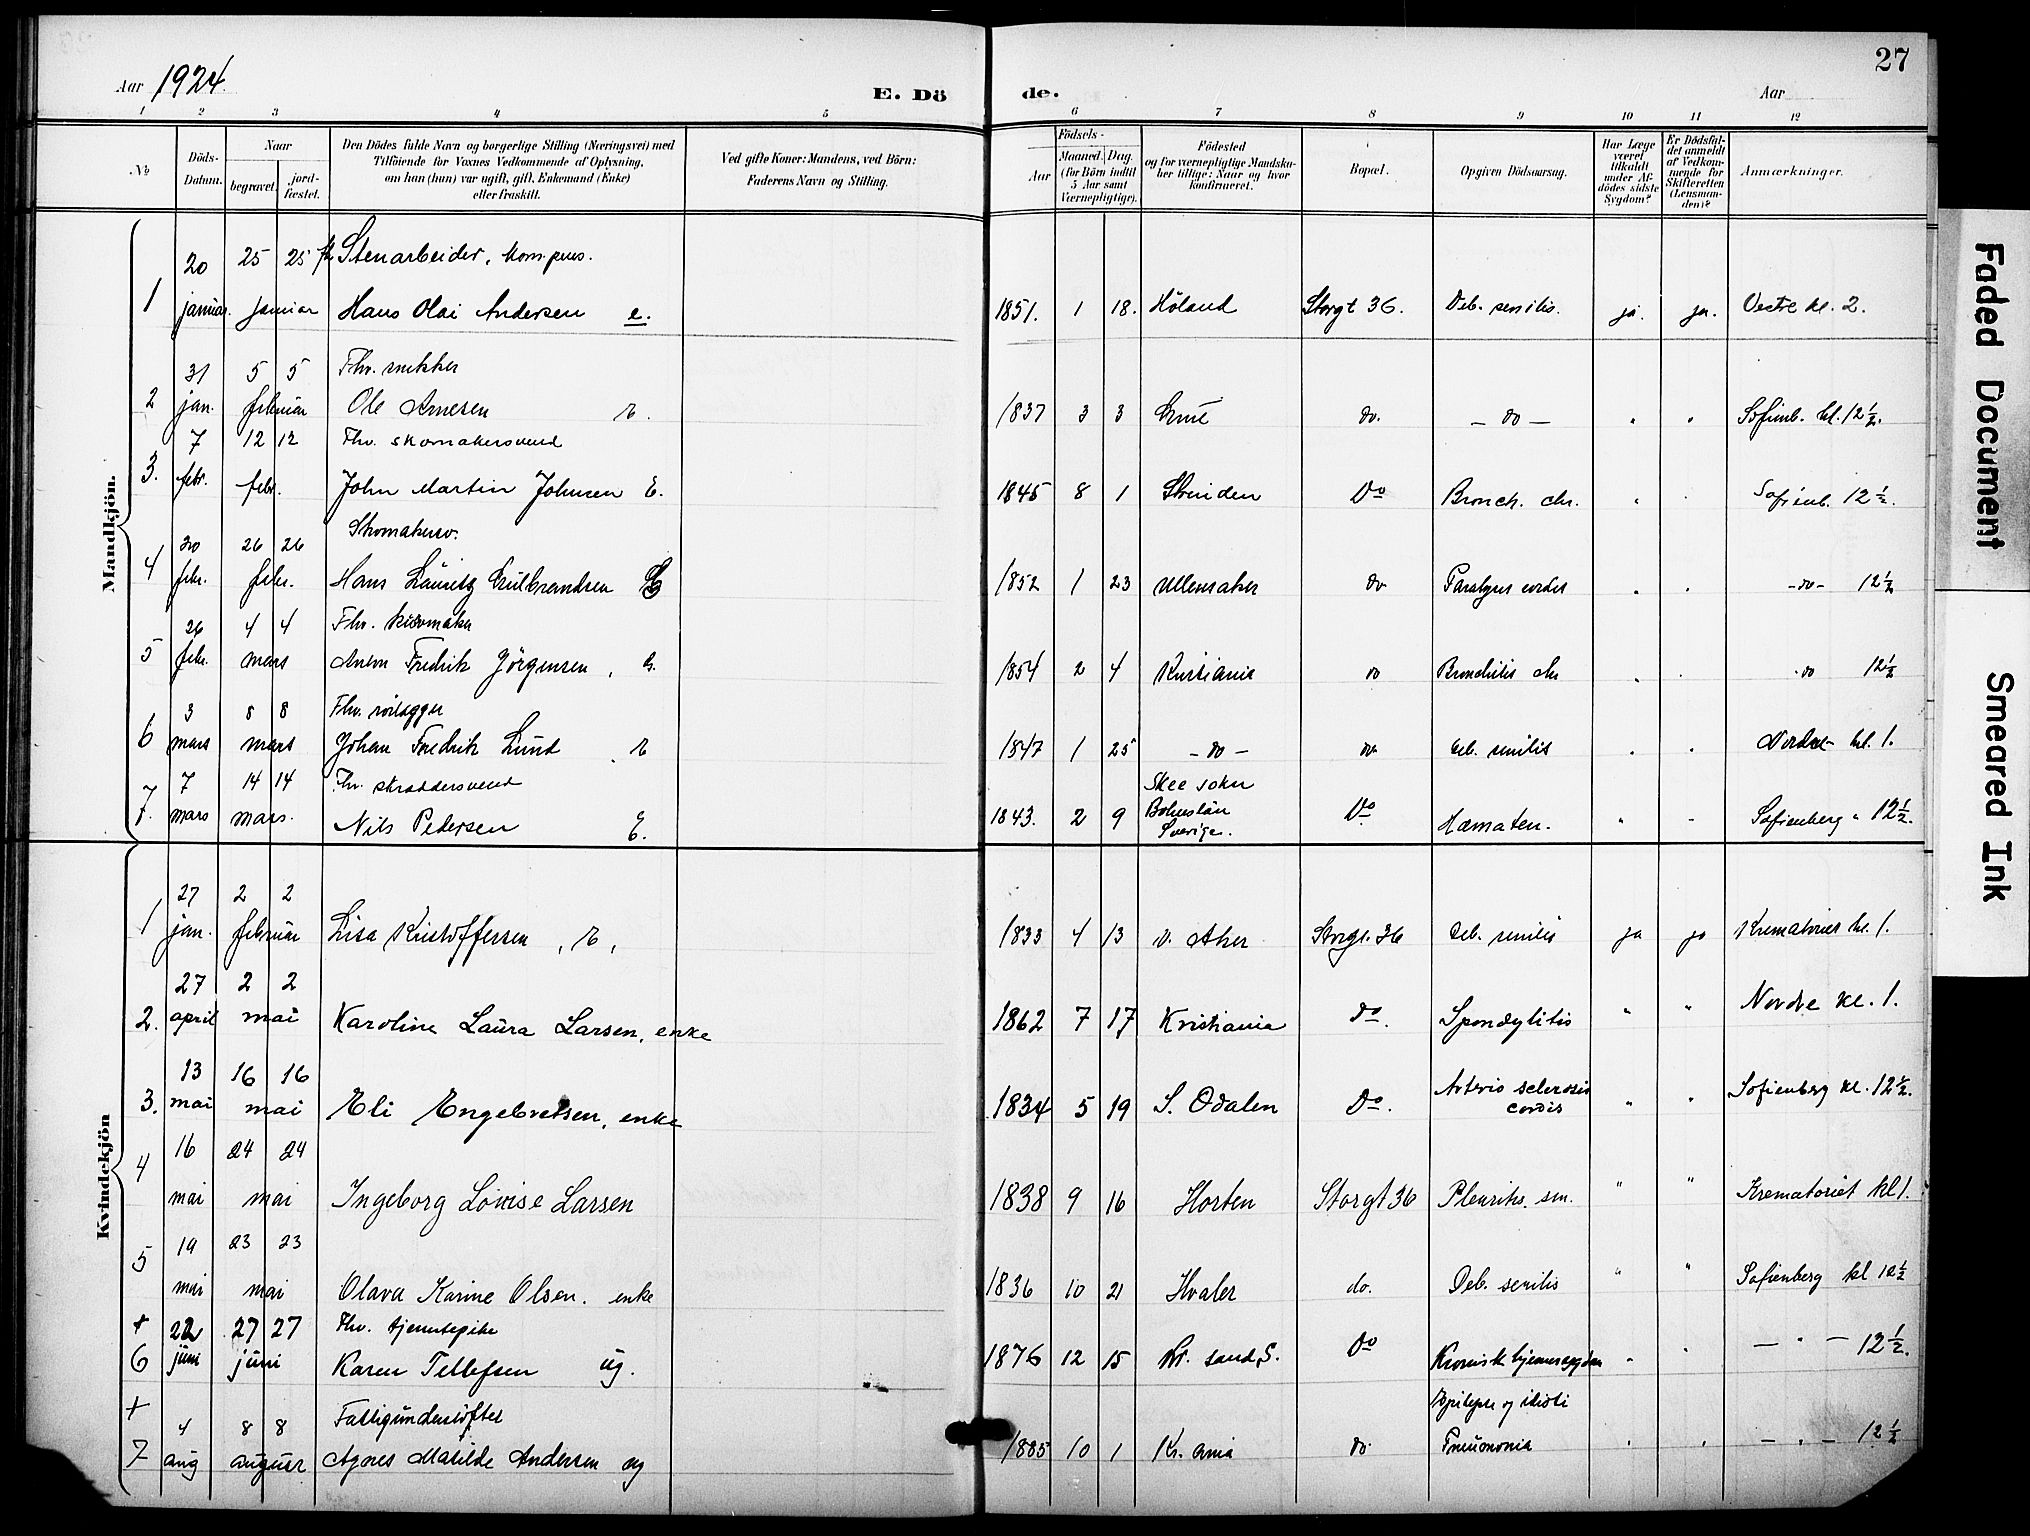 27
Aar 1924.
E. Döde.
Aar
1 2 3 4 5 6 7 8 9 10 11 12
№
Döds-Datum.
Naar
begravet.
jord-fæstet.
Den Dödes fulde Navn og borgerlige Stilling (Næringsvei) med
Tilföiende for Voxnes Vedkommende af Oplysning,
om han (hun) var ugift, gift, Enkemand (Enke)
eller fraskilt.
Ved gifte Koner: Mandens, ved Börn:
Faderens Navn og Stilling.
Födsels-
Aar
Maaned. Dag.
(for Börn indtil
5 Aar samt
Værnepligtige).
Födested
og for værnepligtige Mandska-
ber tillige: Naar og hvor
konfirmeret.
Bopæl.
Opgiven Dödsaarsag.
Har Læge
været
tilkaldt
under Af-
dödes sidste
Sygdom?
Er Dödsfal-
det anmeldt
af Vedkom-
mende for
Skifteretten
(Lensman-
den)?
Anmærkninger.
Mandkjön.
20 25 25 Stenarbeider,
1 januar. januar Hans Olai Andersen e. 1851. 1 18. Höland Storgt 36. Deb. senilis. ja. ja. Vestre kl. 2.
31 5 5 Fhv. snekker
2 jan. februar Ole Arnesen E. 1837 3 3 Grue do. — do — " " Sofienb. kl. 12½.
7 12 12 Fhv. skomakersvend
3. febr. febr. John Martin Johnsen E. 1845 8 1 Strinden Do Bronch. chr. " " Sofienb. 12½.
20 26 26 Skomakersv.
4 febr. febr. Hans Lauritz Gulbrandsen 1852 1 23 Ullensaker do Paralysis cordis " " -do- 12½
26 4 4 Fhv.
5 febr. mars Anton Fredrik Jörgensen, G. 1854 2 4 Kristiania do Bronchitis chr " " do 12½
3 8 8 Fhv.
6 mars mars Johan Fredrik Lund E 1847 1 25 — do — do Deb. senilis " " Nordre kl. 1.
7 14 14 Fhv. skræddersvend Skee sokn
7. mars mars. Nils Pedersen E. 1843. 2 9 Bohuslän Sverige. Do Hæmaten. " " Sofienberg " 12½.
Kvindekjön
27 2 2
1 jan. februar Lisa Kristoffersen, E, 1833 4 13 v. Aker Storgt. 36 Deb. senilis ja ja Krematoriet kl. 1.
27 2 2
2. april mai Karoline Laura Larsen, enke 1862 7 17 Kristiania do. Spondylitis " " Nordre kl. 1.
13 16 16
3. mai mai Eli Engebretsen, enke 1834 5 19 S. Odalen Do. Arterio sclerosis cordis " " Sofienberg kl. 12½.
16 24 24
4 mai mai Ingeborg Lovise Larsen 1838 9 16 Horten Storgt 36 " " Krematoriet kl 1.
19 23 23
5 mai mai Olava Karine Olsen. enke 1836 10 21 Hvaler do. Deb. senilis " " Sofienberg kl 12½
+ 22 27 27 Fhv. tjenestepike
6 juni juni Karen Tellefsen ug. 1876 12 15 Kr. sand, S. Do Kronisk hjernesygdom " " — " — 12½.
+ 4 8 8 Fattigunderstöttet Epilepsi og idioti
7 aug august Agnes Matilde Andersen ug 1885 10 1 Kr. ania do Pneumonia " " — " — 12½
Faded Document
Smeared Ink